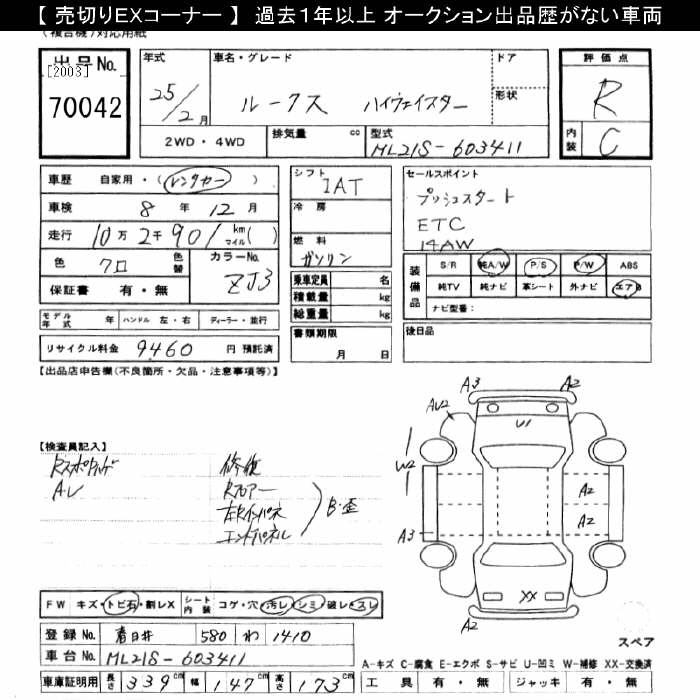 【 売切りEXコーナー 】 過去1年以上 オークション出品歴がない車両
(複合機)対応用紙
出品No.
[2003]
70042
年式
25/2月
車名・グレード
ルークス ハイウェイスター
ドア
形状
2WD・4WD
排気量 cc
型式
ML21S-603411
評価点
R
内装
C
車歴 自家用・(レンタカー)
車検 8年12月
走行 10万2千901 km マイル( )
色 クロ 色替
カラーNo.
ZJ3
保証書 有・無
モデル年式 年 ハンドル 左・右 ディーラー・並行
リサイクル料金 9460 円 預託済
シフト
IAT
冷房
燃料
ガソリン
乗車定員 名
積載量 kg
総重量 kg
書類期限
月 日
セールスポイント
プッシュスタート
ETC
14AW
装備品
S/R 純A/W P/S P/W ABS
純TV 純ナビ 革シート 外ナビ エアB
ナビ型番:
後日品
【出品店申告欄(不良箇所・欠品・注意事項等)】
【検査員記入】
A・レ
修復
Rフロアー
左Rインパネ
エンドパネル
B・歪
A3
A2
AU2
U1
W2
A2
A2
A3
XX
A2
スペア
FW キズ・トビ石・割レX シート内装 コゲ・穴・汚レ・シミ・破レ・スレ
登録No. 春日井 580 わ 1410
車台No. ML21S-603411
車庫証明用 長さ 339cm 幅 147cm 高さ 173cm
A-キズ C-腐食 E-エクボ S-サビ U-凹ミ W-補修 XX-交換済
工具 有・無 ジャッキ 有・無